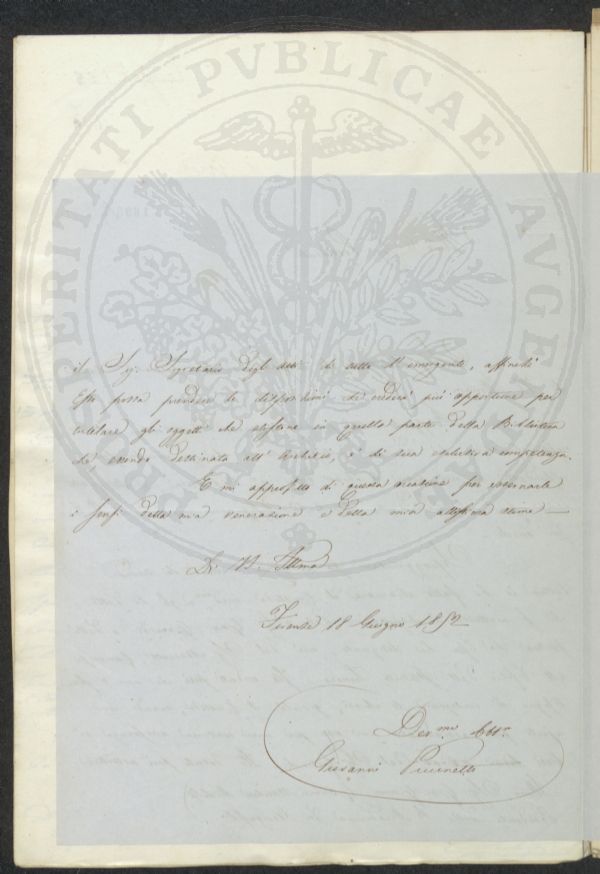 PROSPERITATI PVBLICAE AVGENDAE
il Sig. Segretario degli atti di tutto l'emergente, affinchè
Esso possa prendere le disposizioni che crederà più opportune per
tutelare gli oggetti che esistono in quella parte della Biblioteca
che essendo destinata all' Archivio, è di sua esclusiva competenza.
E mi approfitto di questa occasione per esternarle
i sensi della mia venerazione e della mia altissima stima —
Di V. Illma
Firenze 18 Giugno 1852
Dev.mo
Giovanni